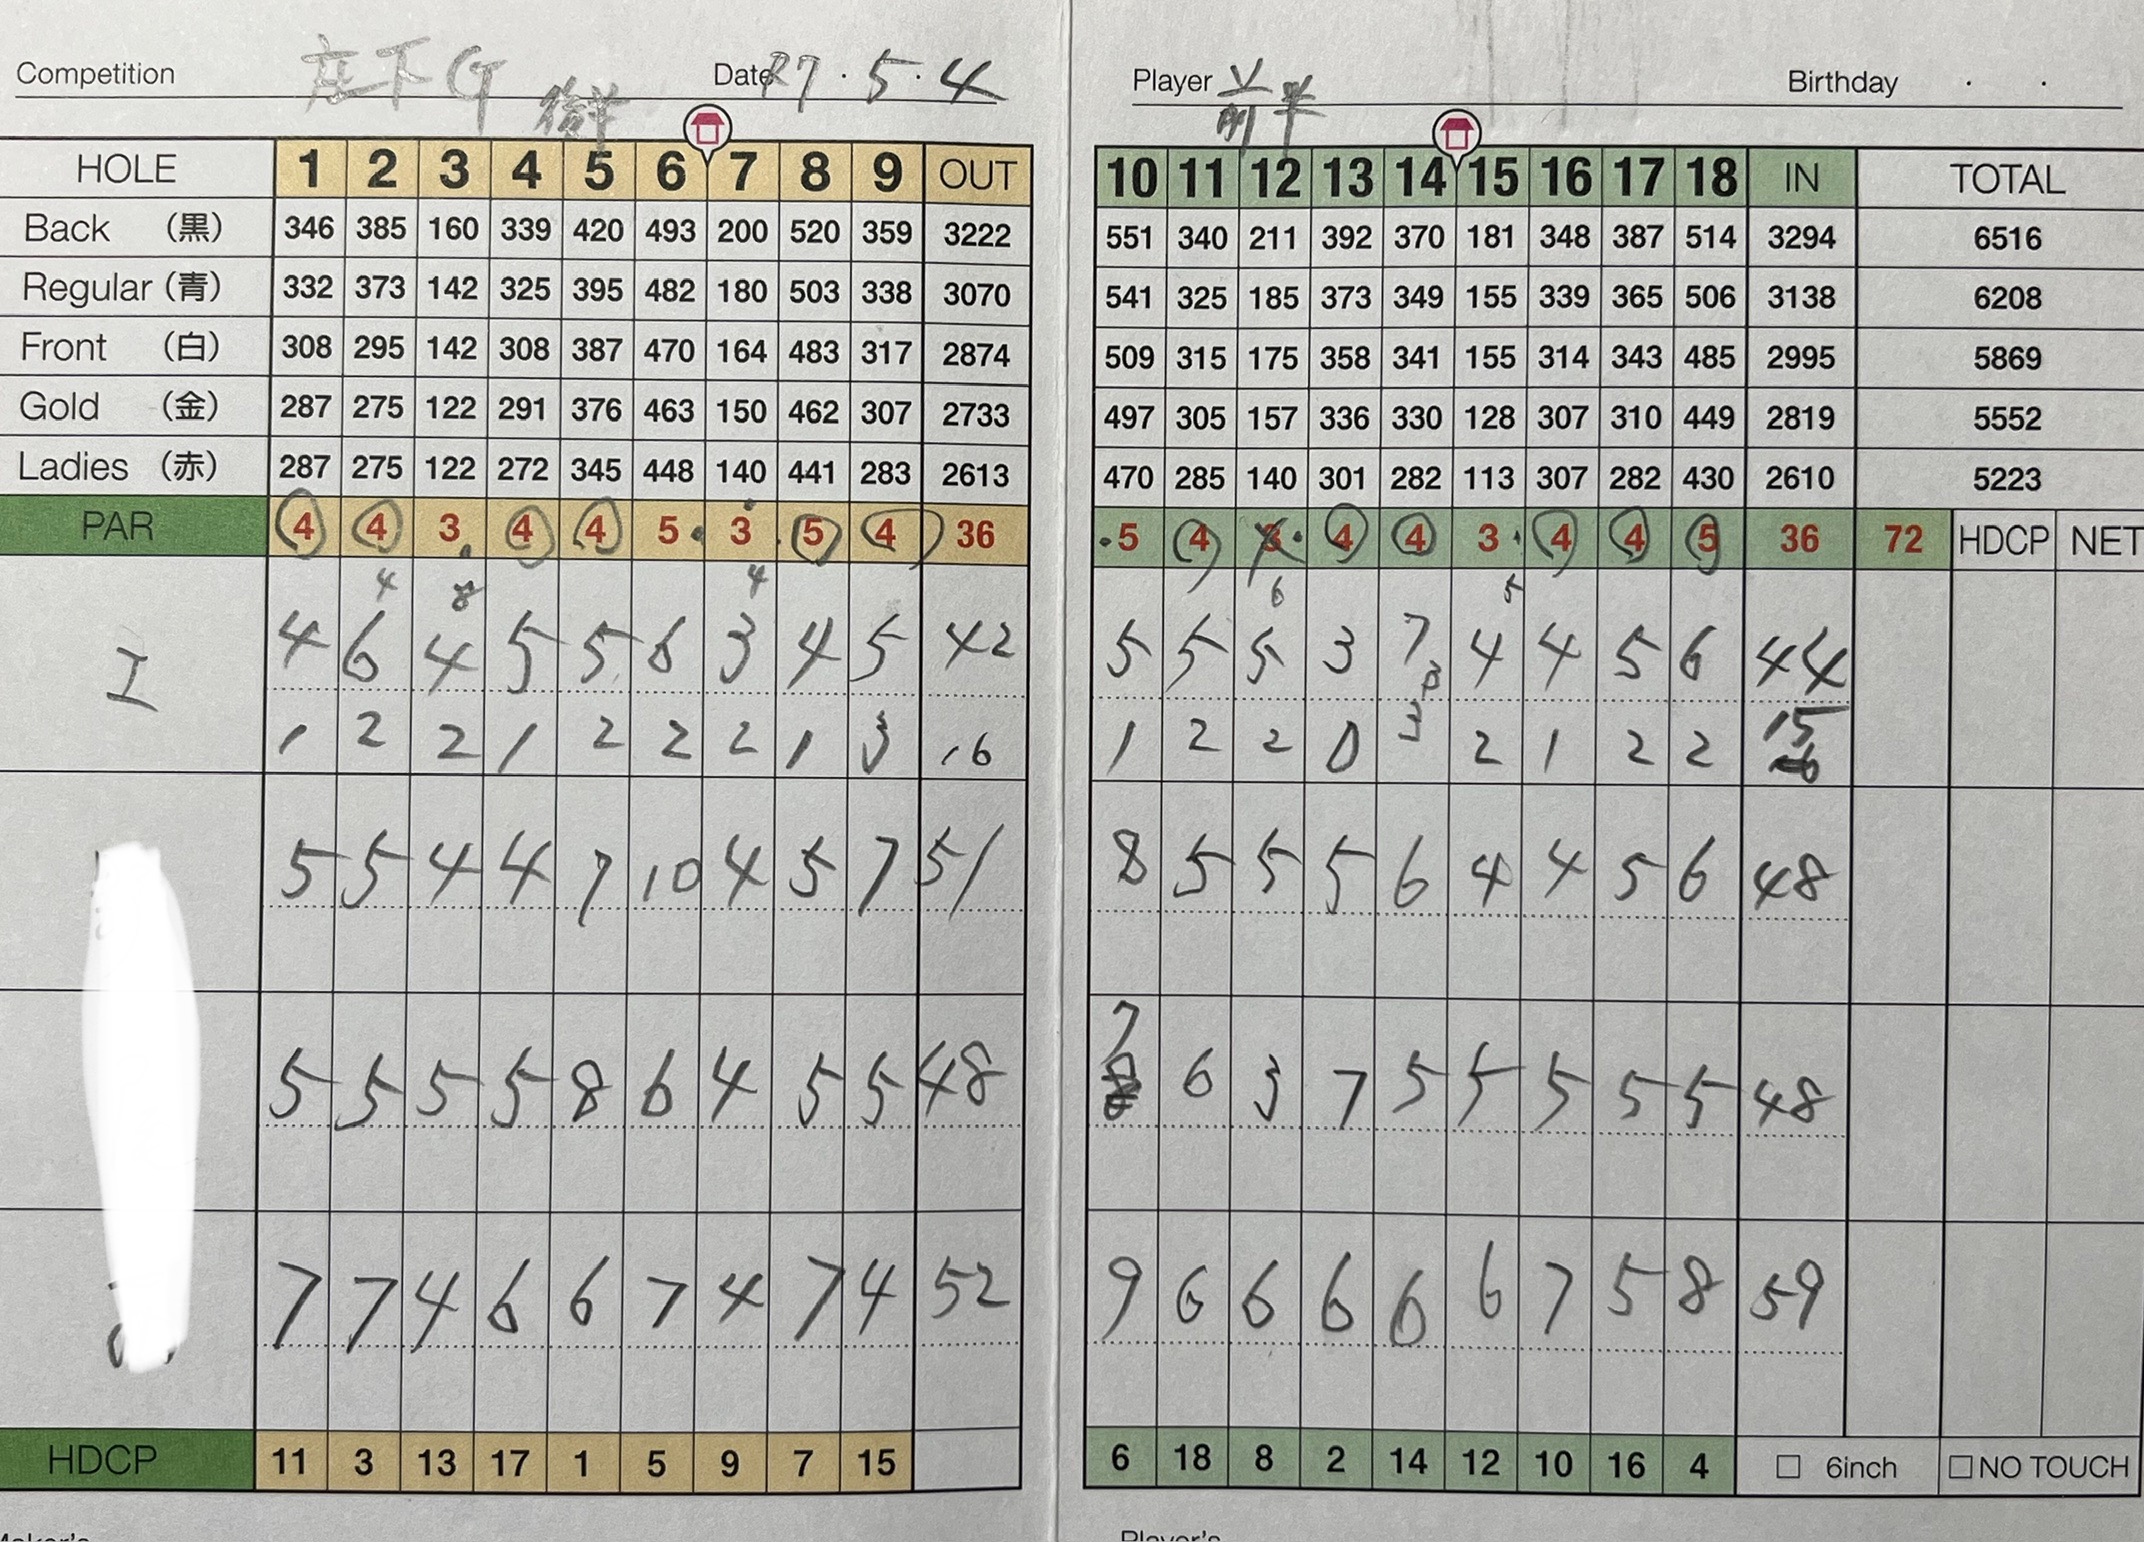 Competition 庄下G 後半 Date R7・5・4 Player 前半 Birthday ・ ・
HOLE 1 2 3 4 5 6 7 8 9 OUT 10 11 12 13 14 15 16 17 18 IN TOTAL
Back (黒) 346 385 160 339 420 493 200 520 359 3222 551 340 211 392 370 181 348 387 514 3294 6516
Regular (青) 332 373 142 325 395 482 180 503 338 3070 541 325 185 373 349 155 339 365 506 3138 6208
Front (白) 308 295 142 308 387 470 164 483 317 2874 509 315 175 358 341 155 314 343 485 2995 5869
Gold (金) 287 275 122 291 376 463 150 462 307 2733 497 305 157 336 330 128 307 310 449 2819 5552
Ladies (赤) 287 275 122 272 345 448 140 441 283 2613 470 285 140 301 282 113 307 282 430 2610 5223
PAR 4 4 3 4 4 5 3 5 4 36 5 4 3 4 4 3 4 4 5 36 72 HDCP NET
4 8 4 6 5
I 4 6 4 5 5 6 3 4 5 42 5 5 5 3 7 4 4 5 6 44
1 2 2 1 2 2 2 1 3 16 1 2 2 0 3 2 1 2 2 15
5 5 4 4 7 10 4 5 7 51 8 5 5 5 6 4 4 5 6 48
5 5 5 5 8 6 4 5 5 48 7 6 3 7 5 5 5 5 5 48
7 7 4 6 6 7 4 7 4 52 9 6 6 6 6 6 7 5 8 59
HDCP 11 3 13 17 1 5 9 7 15 6 18 8 2 14 12 10 16 4 □ 6inch □ NO TOUCH
Maker's Player's